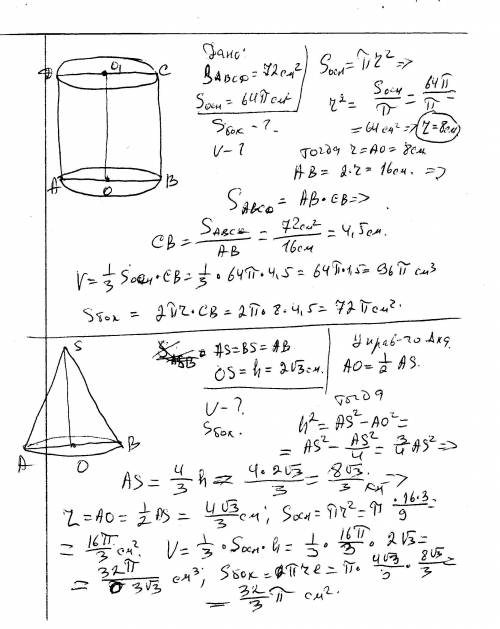 O₁
C
A
O
B
Дано:
S_ABCD = 72см²
Sосн = 64π см²
Sбок - ?
V - ?
Sосн = πr² =>
r² = Sосн/π = 64π/π =
= 64см² => r = 8см
тогда r = AO = 8см
AB = 2·r = 16см. =>
S_ABCD = AB·CB =>
CB = S_ABCD/AB = 72см²/16см = 4,5см.
V = 1/3 Sосн·CB = 1/3 · 64π·4,5 = 64π·1,5 = 96π см³
Sбок = 2πr·CB = 2π·8·4,5 = 72π см².
S
A
O
B
AS = BS = AB
OS = h = 2√3 см.
V - ?
Sбок.
AO = 1/2 AS.
тогда
h² = AS² - AO² =
= AS² - AS²/4 = 3/4 AS² =>
AS = 4/3 h = 4·2√3/3 = 8√3/3 см =>
r = AO = 1/2 AS = 4√3/3 см; Sосн = πr² = π · 16·3/9 =
= 16π/3 см². V = 1/3 · Sосн·h = 1/3 · 16π/3 · 2√3 =
= 32π/3√3 см³; Sбок = πrl = π · 4√3/3 · 8√3/3 =
= 32/3 π см².